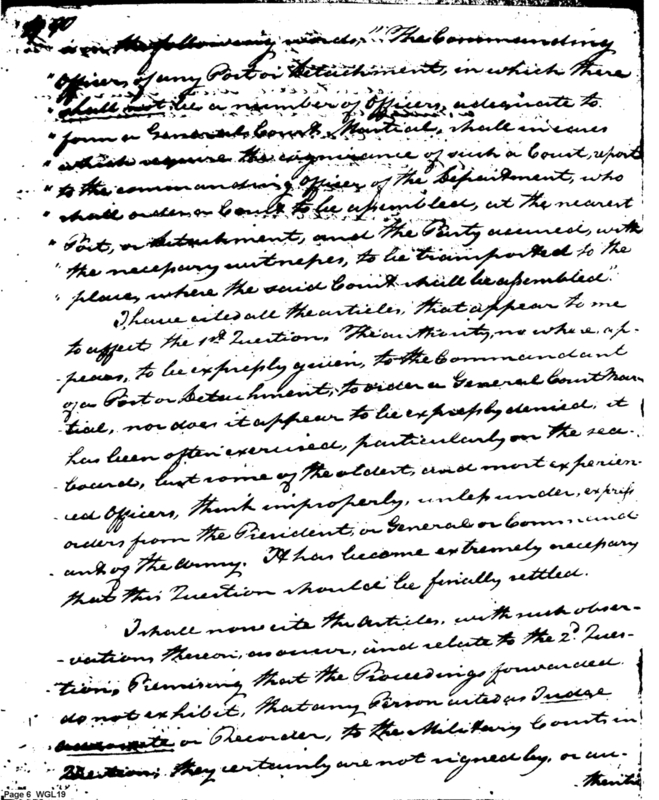 90
is in the following words, "The Commanding
"Officer, of any Post or Detachment, in which there
"shall not be a number of Officers, adequate to
"form a General Court Martial, shall in cases
"which require the cognizance of such a Court, report
"to the commanding Officer of the Department, who
"shall order a Court to be assembled, at the nearest
"Post, or Detachment, and the Party accused, with
"the necessary witnesses, to be transported to the
"place, where the said Court shall be assembled."
I have cited all the articles, that appear to me
to affect the 1st Question. The authority, no where, ap-
-pears, to be expressly given, to the Commandant
of a Post or Detachment, to order a General Court Mar-
tial, nor does it appear to be expressly denied, it
has been often exercised, particularly on the sea-
board, but some of the oldest, and most experien-
-ced Officers, think improperly, unless under, express
orders from the President, or General or Command
-ant of the army. It has become extremely necessary
that this Question should be finally settled.
I shall now cite the articles, with such obser-
-vations thereon, as occur, and relate to the 2d Ques-
tion, Premising that the Proceedings forwarded
do not exhibit, that any Person acted as Judge
advocate or Recorder, to the Military Court in
Question, they certainly are not signed by, or au-
thentic
Page 6 WGL19